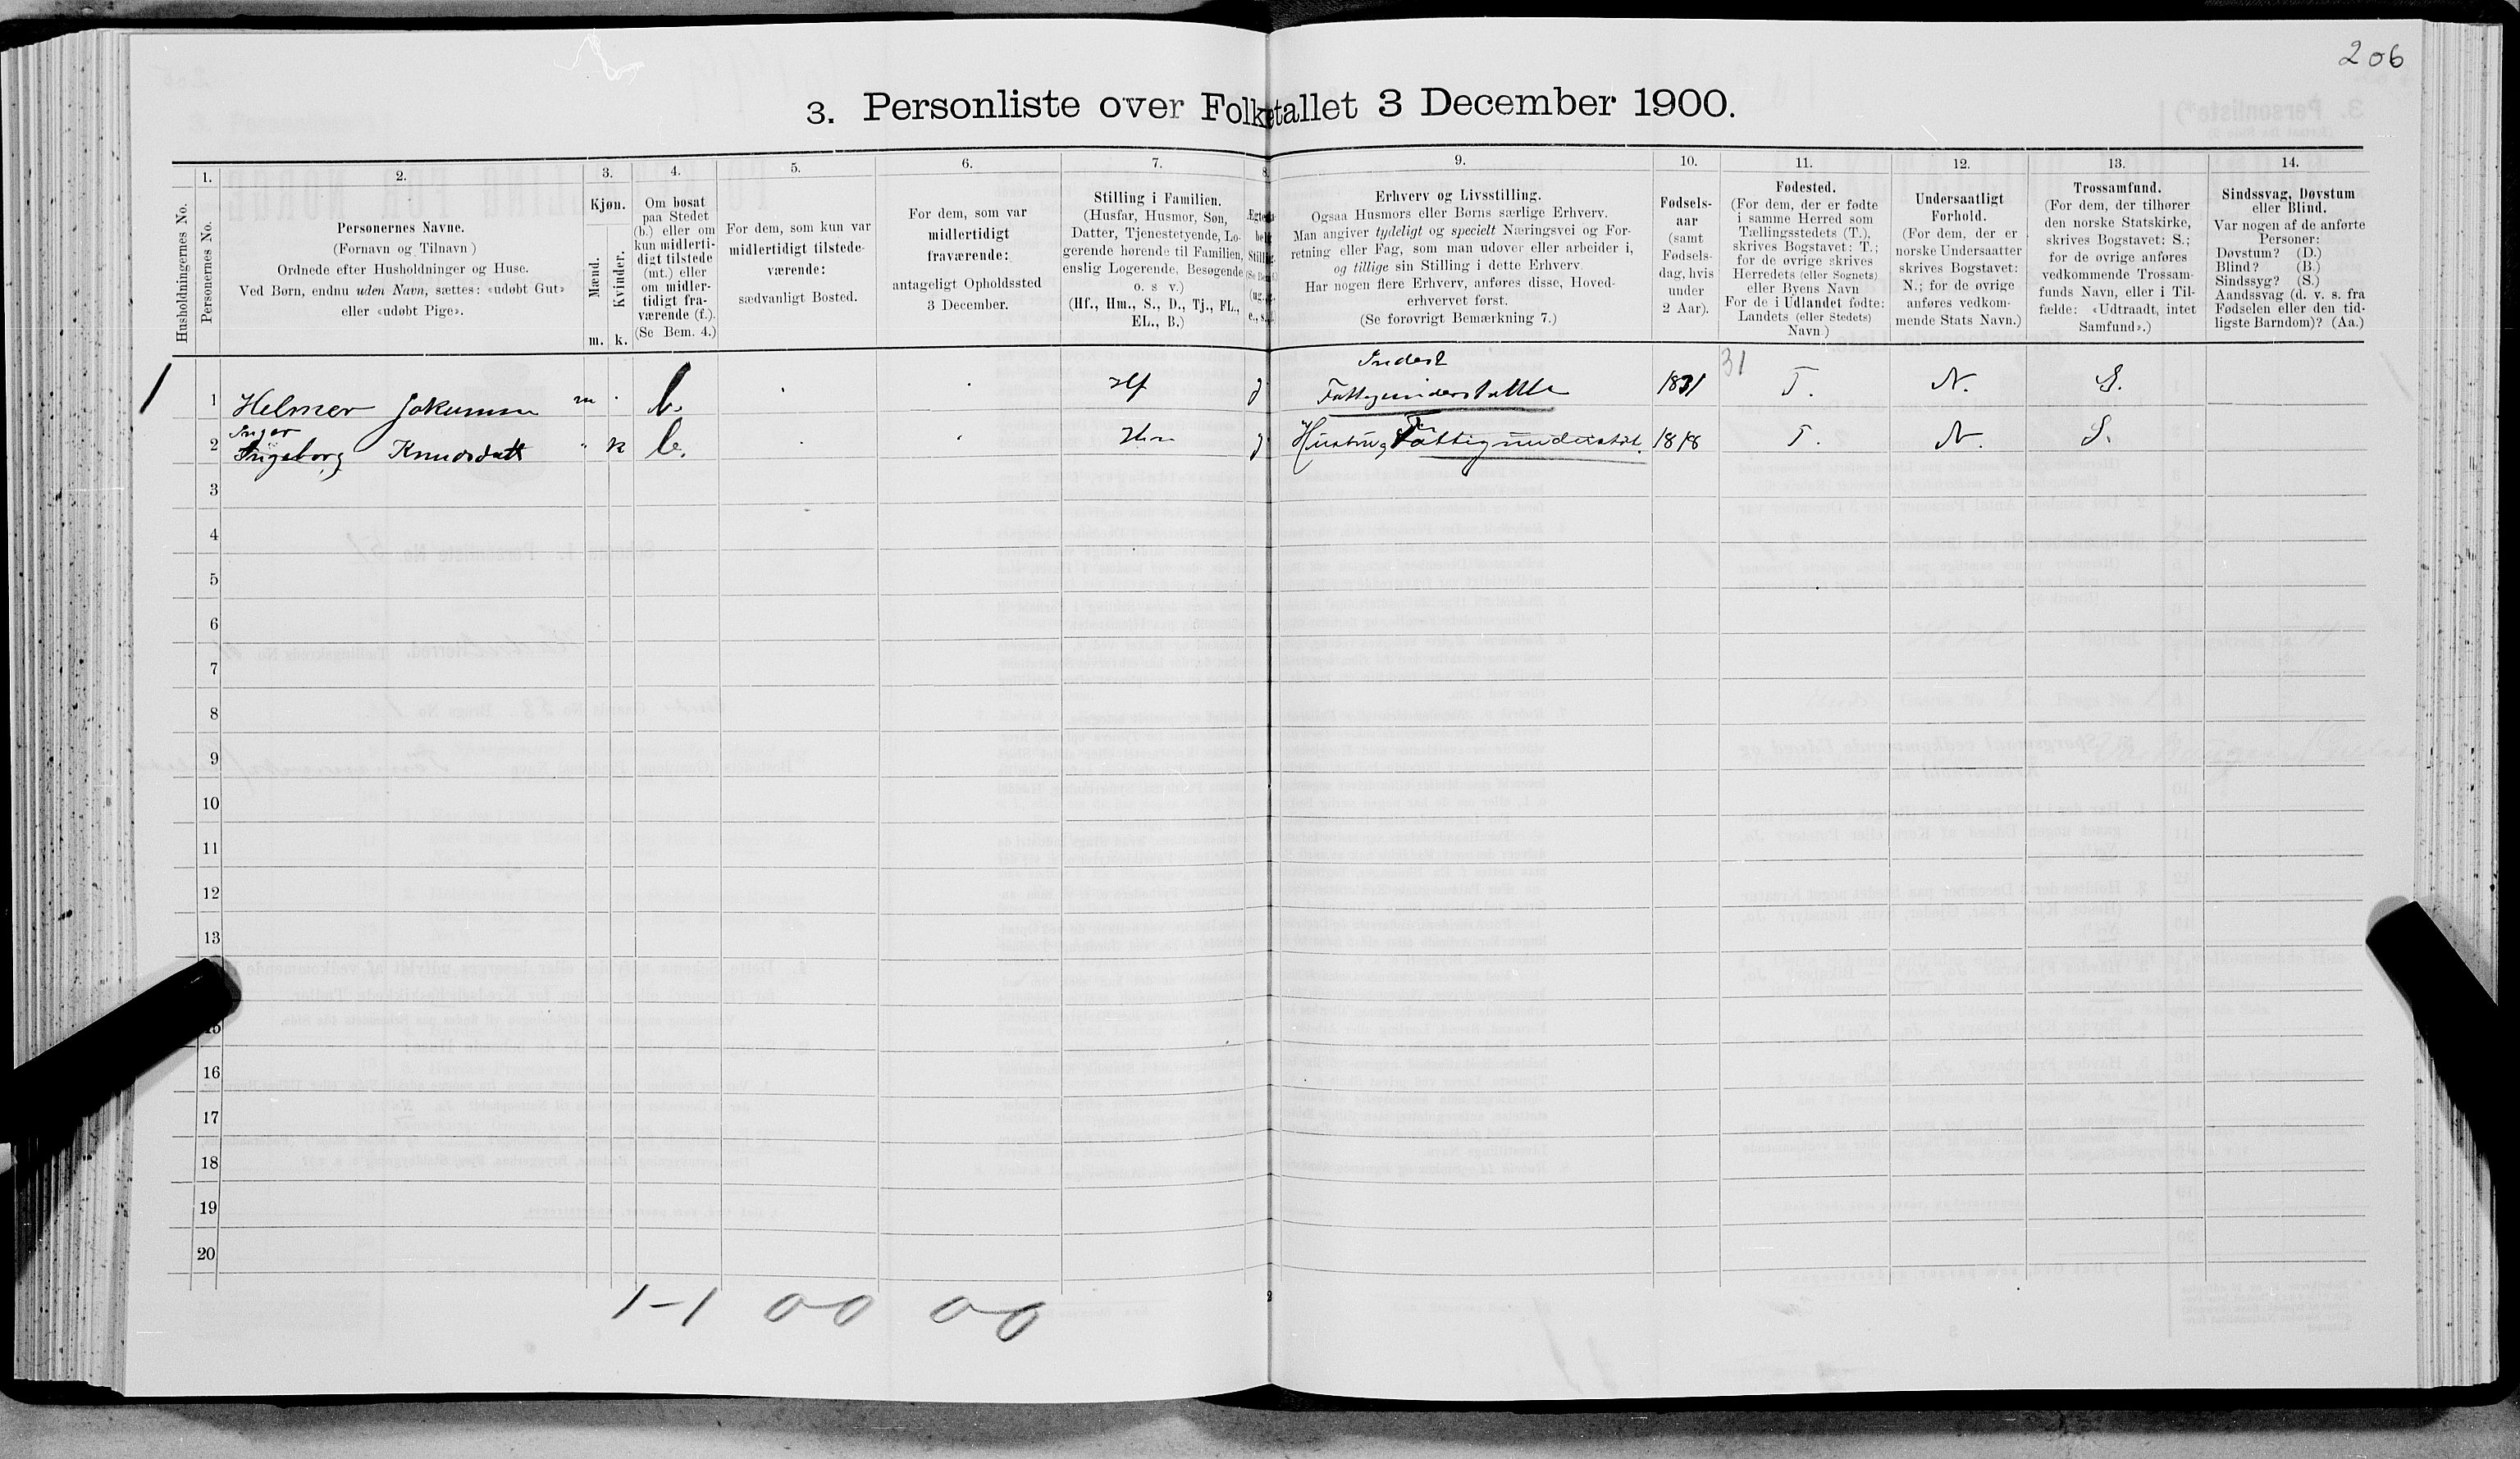 206
3. Personliste over Folketallet 3 December 1900.
1. 2. 3. 4. 5. 6. 7. 8. 9. 10. 11. 12. 13. 14.
Husholdningernes No.
Personernes No.
Personernes Navne.
(Fornavn og Tilnavn)
Ordnede efter Husholdninger og Huse.
Ved Børn, endnu uden Navn, sættes: «udøbt Gut»
eller «udøbt Pige».
Kjøn.
Mænd.
Kvinder.
m. k.
Om bosat
paa Stedet
(b.) eller om
kun midlerti-
digt tilstede
(mt.) eller
om midler-
tidigt fra-
værende (f.).
(Se Bem. 4.)
For dem, som kun var
midlertidigt tilstede-
værende:
sædvanligt Bosted.
For dem, som var
midlertidigt
fraværende:
antageligt Opholdssted
3 December.
Stilling i Familien.
(Husfar, Husmor, Søn,
Datter, Tjenestetyende, Lo-
gerende hørende til Familien,
enslig Logerende, Besøgende
o. s v.)
(Hf., Hm., S., D., Tj., FL.,
EL., B.)
Erhverv og Livsstilling.
Ogsaa Husmors eller Børns særlige Erhverv.
Man angiver tydeligt og specielt Næringsvei og For-
retning eller Fag, som man udøver eller arbeider i,
og tillige sin Stilling i dette Erhverv
Har nogen flere Erhverv, anføres disse, Hoved-
erhvervet først.
(Se forøvrigt Bemærkning 7.)
Fødsels-
aar
(samt
Fødsels-
dag, hvis
under
2 Aar).
Fødested.
(For dem, der er fødte
i samme Herred som
Tællingsstedets (T.),
skrives Bogstavet: T.;
for de øvrige skrives
Herredets (eller Sognets)
eller Byens Navn
For de i Udlandet fødte:
Landets (eller Stedets)
Navn)
Undersaatligt
Forhold.
(For dem, der er
norske Undersaatter
skrives Bogstavet:
N.; for de øvrige
anføres vedkom-
mende Stats Navn.)
Trossamfund.
(For dem, der tilhører
den norske Statskirke,
skrives Bogstavet: S.;
for de øvrige anføres
vedkommende Trossam-
funds Navn, eller i Til-
fælde: «Udtraadt, intet
Samfund».)
Sindssvag, Døvstum
eller Blind.
Var nogen af de anførte
Personer:
Døvstum? (D.)
Blind? (B.)
Sindssyg? (S.)
Aandssvag (d. v. s. fra
Fødselen eller den tid-
ligste Barndom)? (Aa.)
Inderst 31
1 1 Helmer Jokumsen m b. Hf g Fattigunderstøttet 1831 T. N. S.
Inger
2 Ingeborg Knudsdatt k b. Hm g Hustru, Fattigunderstøt. T. N. S.
3
4
5
6
7
8
9
10
11
12
13
15
16
17
18
19
20
1-1 00 00